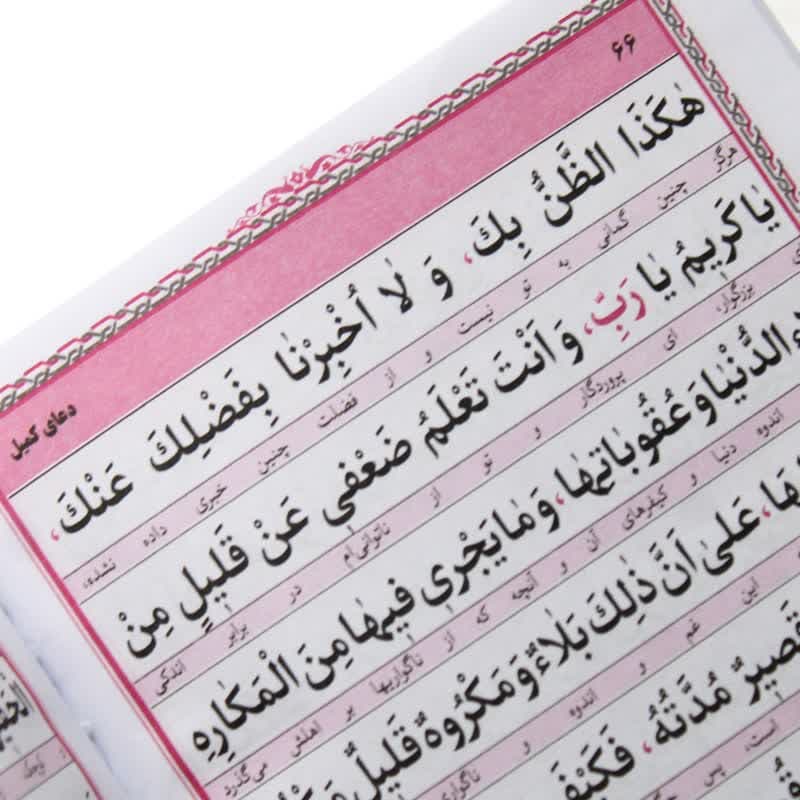 ۶۶
دعای کمیل
هٰکَذَا الظَّنُّ بِکَ، وَ لٰا اُخْبِرْنٰا بِفَضْلِکَ عَنْکَ،
هرگز چنین گمانی به تو نیست و از فضلت چنین خبری داده نشده،
یٰا کَریمُ یٰا رَبِّ، وَ اَنْتَ تَعْلَمُ ضَعْفی عَنْ قَلیلٍ مِنْ
بزرگوار، ای پروردگار و تو از ناتوانی‌ام در برابر اندکی
الدُّنْیٰا وَ عُقُوبٰاتِهٰا، وَ مٰا یَجْری فیهٰا مِنَ الْمَکٰارِهِ
اندوه دنیا و کیفرهای آن و آنچه که از ناگواریها بر اهلش می‌گذرد
عَلیٰ اَنَّ ذٰلِکَ بَلٰاءٌ وَ مَکْرُوهٌ قَلیلٌ
این غم و اندوه و
مُدَّتُهُ، فَکَیْفَ
است، پس